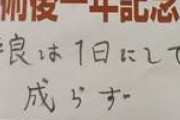 術後一年記念
良は1日にして
成らず